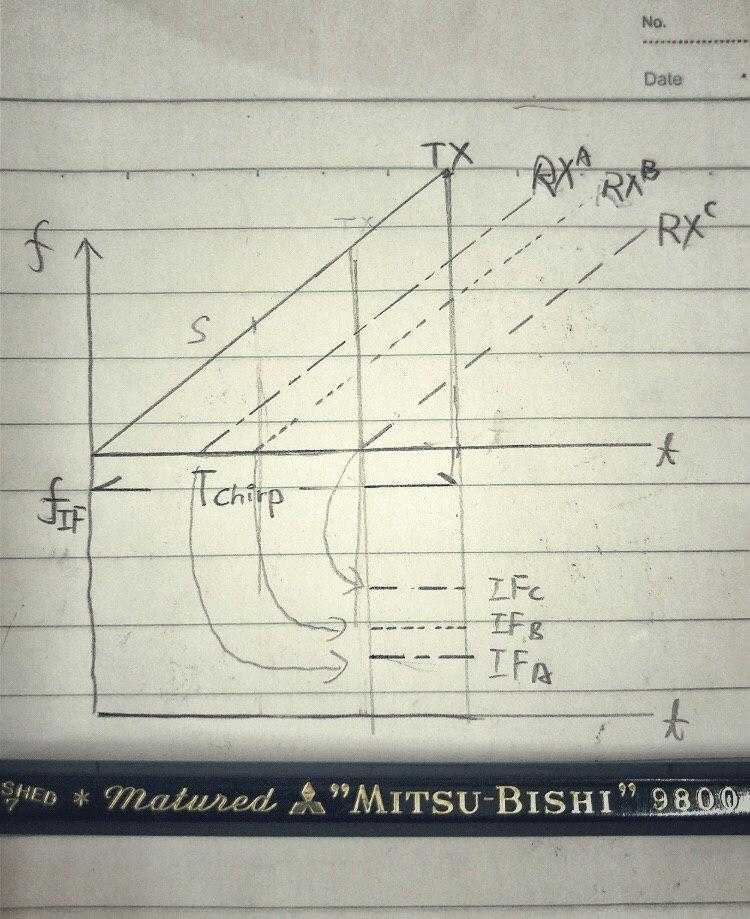 No.
Date
TX
RX^A
RX^B
RX^C
f
TX
S
t
T_chirp
f_IF
IF_C
IF_B
IF_A
t
SHED * Matured "MITSU-BISHI" 9800